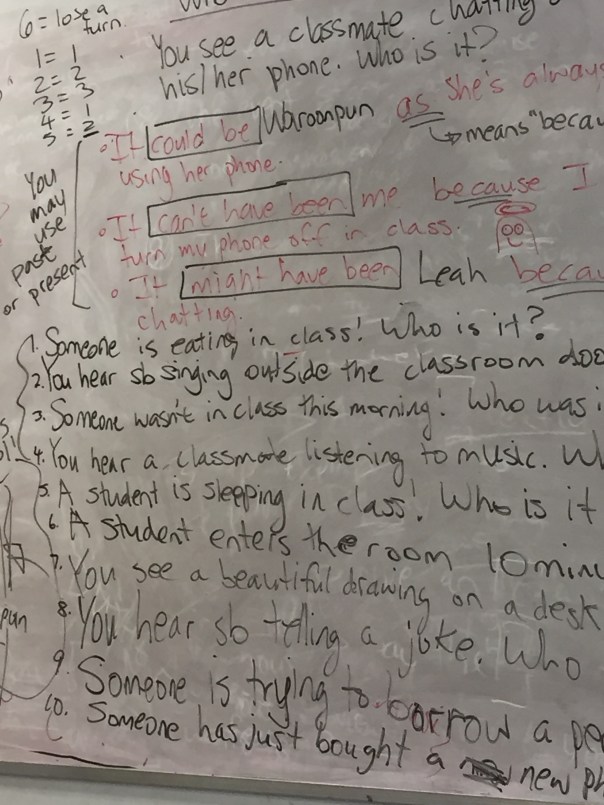 6 = lose a turn.
1 = 1
2 = 2
3 = 3
4 = 1
5 = 2
You see a classmate chatting
his/her phone. Who is it?
You may use past or present
• It could be Waroonpun as she's always
↳ means "becau
using her phone.
• It can't have been me because I
turn my phone off in class.
• It might have been Leah becau
chatting.
1. Someone is eating in class! Who is it?
2. You hear sb singing outside the classroom doo
3. Someone wasn't in class this morning! Who was i
4. You hear a classmate listening to music. W
5. A student is sleeping in class! Who is it
6. A student enters the room 10 minu
7. You see a beautiful drawing on a desk
8. You hear sb telling a joke. Who
9. Someone is trying to borrow a pe
10. Someone has just bought a new ph
pun